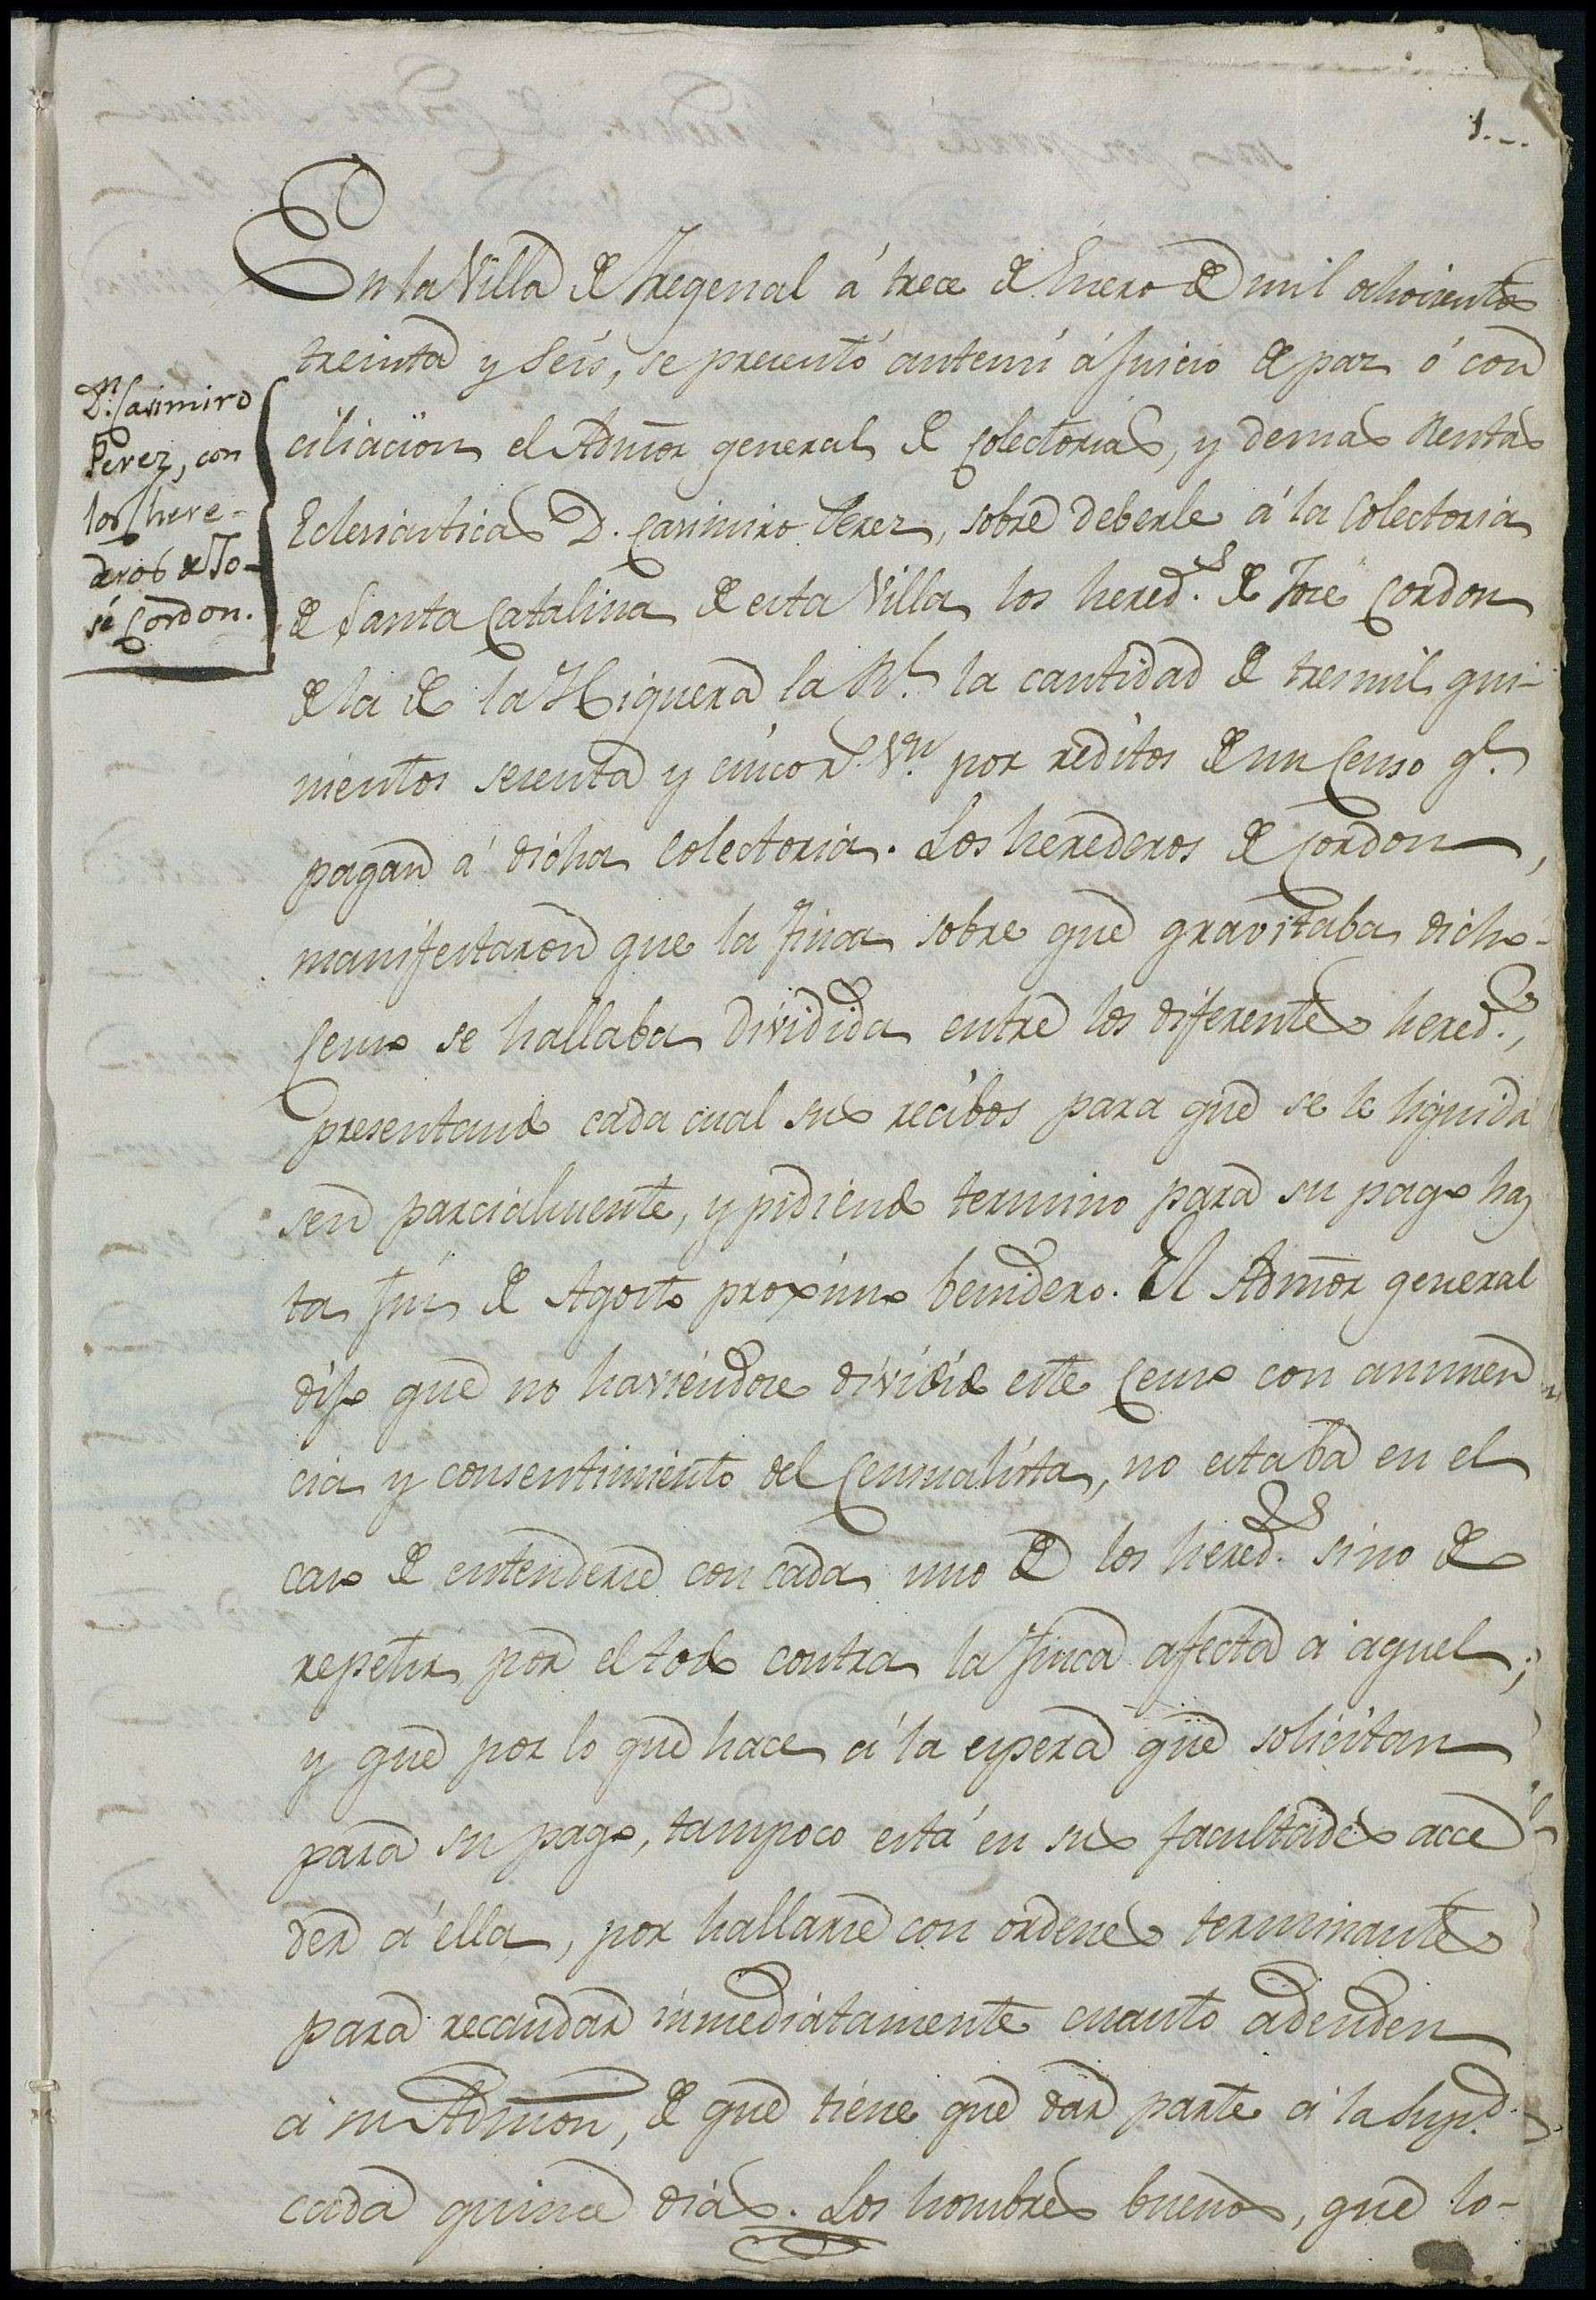 1.--.
En la Villa de Fregenal á trece de Enero de mil ochocientos
treinta y seis, se presentó antemi á Juicio de paz ó con
ciliacion el Admor general de Colectorias, y demas Rentas
Eclesiasticas D. Casimiro Perez, sobre deberle á la Colectoria
de Santa Catalina de esta Villa los hered.s de José Cordon
de la de la Higuera la R.l la cantidad de tresmil qui-
nientos sesenta y cinco r.s v.n por reditos de un Censo q.e
pagan á dicha Colectoria. Los herederos de Cordon,
manifestaron que la finca sobre que gravitaba dicho
Censo se hallaba dividida entre los diferentes hered.s,
presentando cada cual sus recibos para que se le liquida
sen parcialmente, y pidiendo termino para su pago has
ta fin de Agosto proximo benidero. El Admor general
dijo que no haviendose dividido este Censo con annuen
cia y consentimiento del Censualista, no estaba en el
caso de entenderse con cada uno de los hered.s sino de
repetir por el todo contra la finca afecta á aquel;
y que por lo que hace á la espera que solicitan
para su pago, tampoco está en sus facultades acce
der á ella, por hallarse con ordenes terminantes
para recaudar inmediatamente cuanto adeuden
á su Admon, de que tiene que dar parte á la Sup.d
cada quince dias. Los hombres buenos, que lo-
D.n Casimiro
Perez, con
los here-
deros de Jo-
sé Cordon.